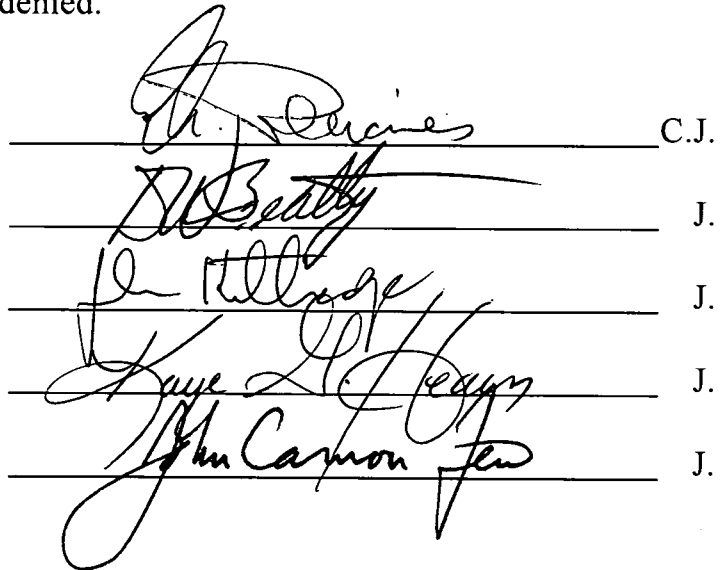 denied.
Pleicones C.J.
DW Beatty J.
John Kittredge J.
Kaye G. Hearn J.
John Cannon Few J.